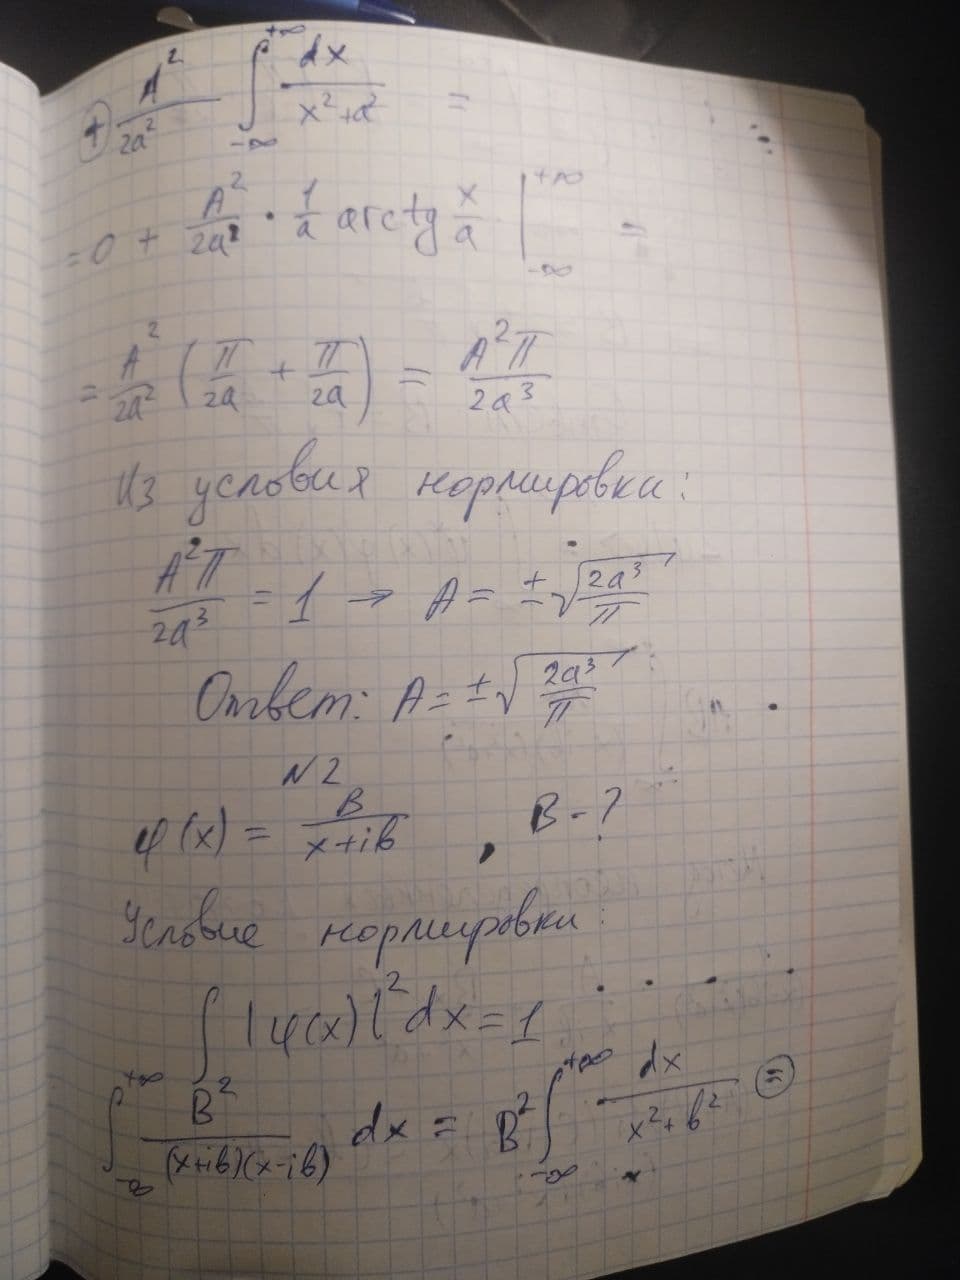 ⊕ A²/2a² ∫_{-∞}^{+∞} dx/(x²+a²) =
= 0 + A²/2a² · 1/a arctg x/a |_{-∞}^{+∞} =
= A²/2a² (π/2a + π/2a) = A²π/2a³
Из условия нормировки:
A²π/2a³ = 1 → A = ±√(2a³/π)
Ответ: A = ±√(2a³/π)
N2
φ(x) = B/(x+iв) , B-?
Условие нормировки:
∫|φ(x)|²dx = 1
∫_{-∞}^{+∞} B²/((x+iв)(x-iв)) dx = B² ∫_{-∞}^{+∞} dx/(x²+в²) ⊜